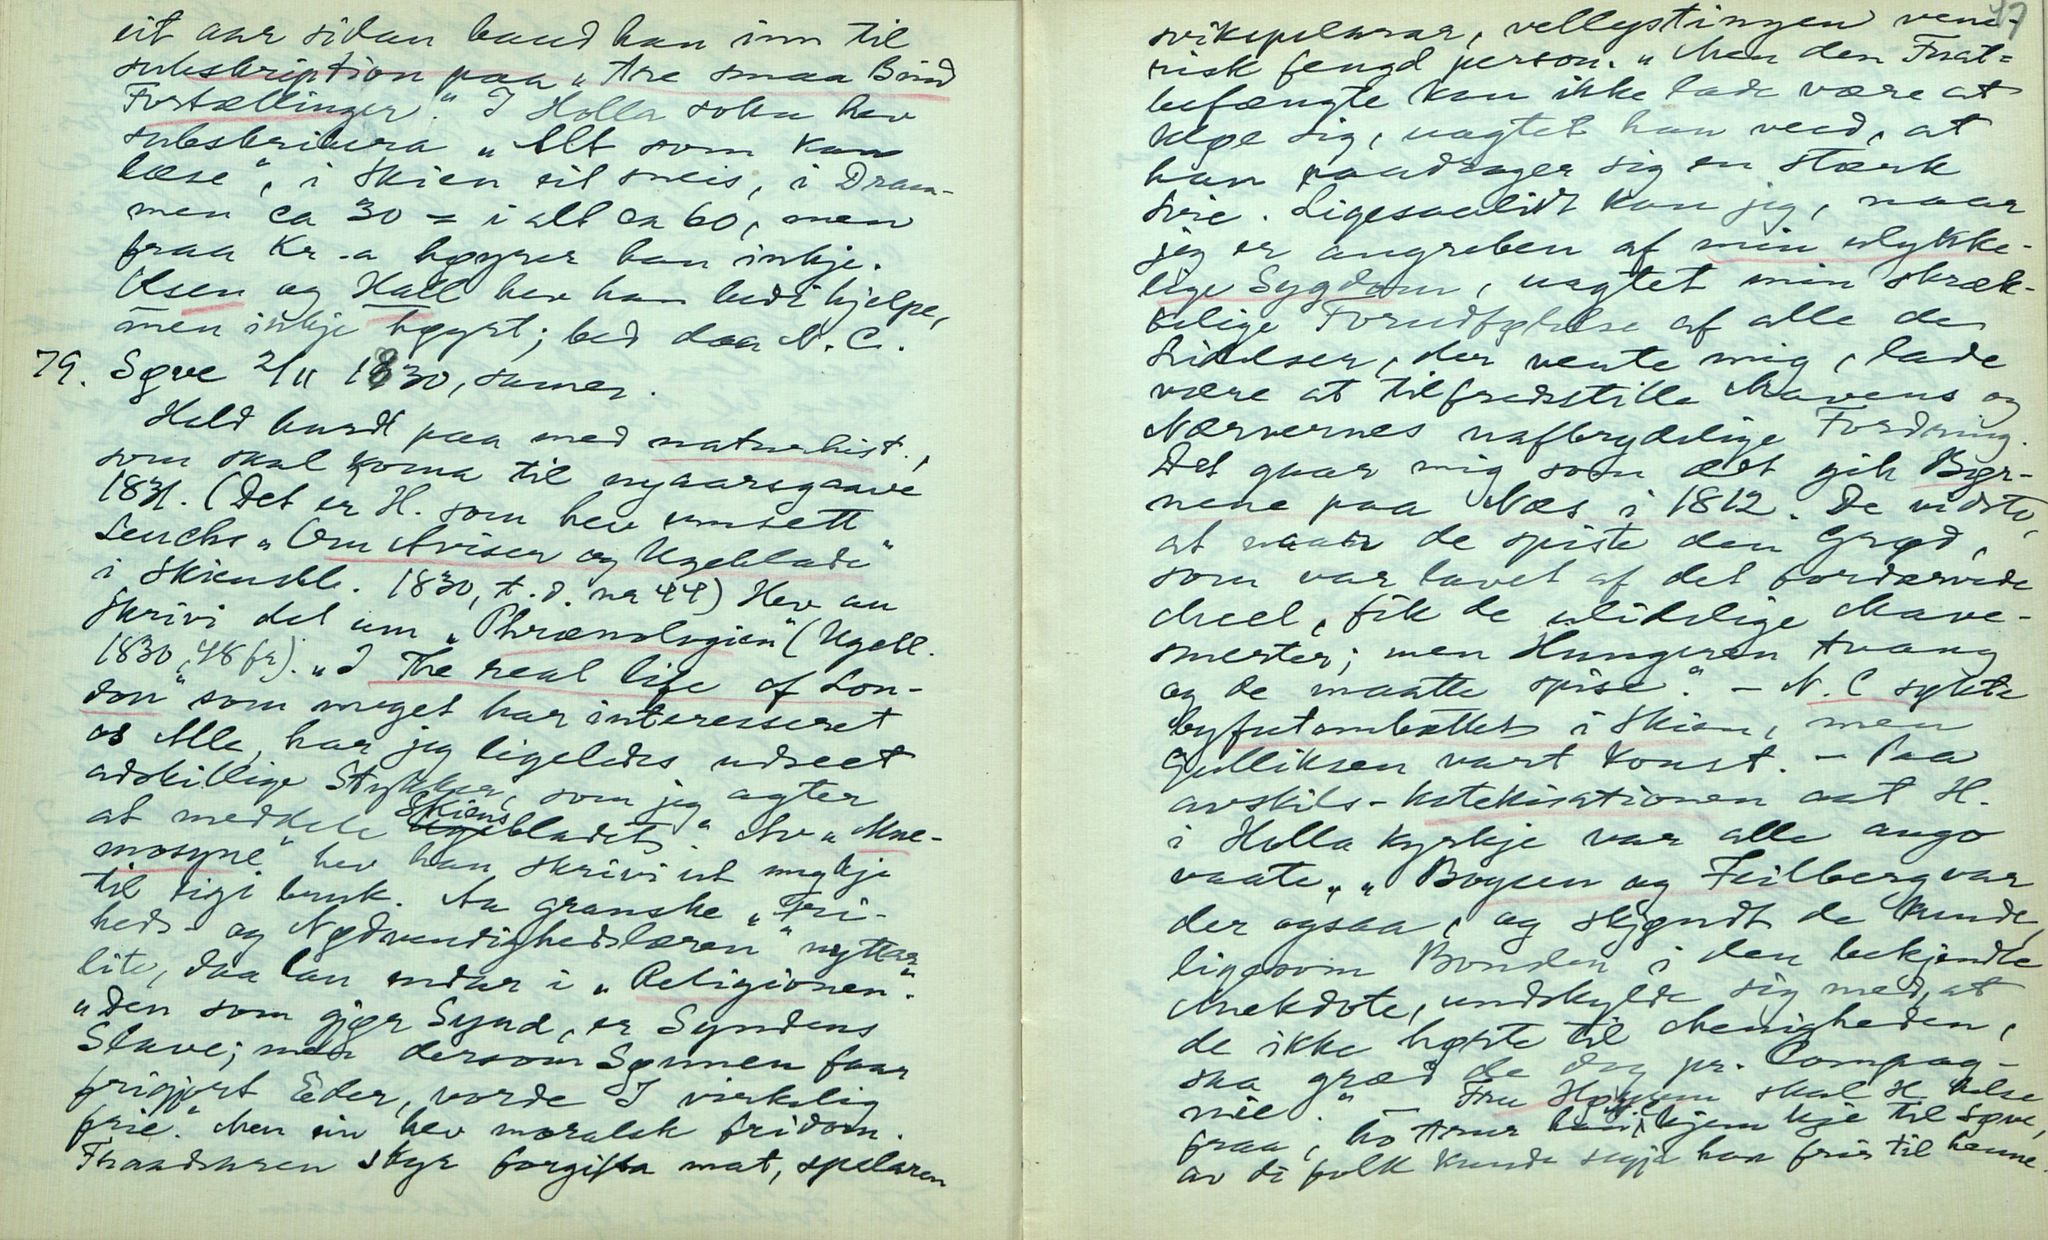 eit aar sidan baud han inn til
subskription paa „tre smaa Bind
Fortællinger." I Holla sokn hev
subskribera „Alt som kan
læse", i Skien eit sneis, i Dram-
men ca 30 = i alt ca 60, men
fraa Kr.a høyrer han inkje.
Olsen og Hall hev han bedi hjelpe,
men inkje høyrt; bed daa N. C.
79. Søve 2/11 1830, samer.
Held hardt paa med naturhist.,
som skal koma til nyaarsgaave
1831. (Det er H. som hev umsett
Leuchs „Om Aviser og Ugeblade"
i Skiensbl. 1830, t. d. nr 44) Hev au
skrivi det um „Phrænologien" (Ugebl.
1830, 48 fr). „I The real life of Lon-
don" som meget har interesseret
os Alle, har jeg ligeledes udseet
adskillige Stykker, som jeg agter
at meddele Skiensbladet." Av „Mne-
mosyne" hev han skrivi ut mykje
til eigi bruk. Aa granske „Fri-
heds- og Nødvendighedslæren" nyttar
lite, daa lan endar i „Religionen".
„Den som gjør Synd, er Syndens
Slave; men dersom Sønnen faar
frigjort Eder, vorde I virkelig
frie." Men ein hev moralsk fridom.
Fraadsaren skyr forgifta mat, spelaren
47
svikspelarar, vellystingen vene-
risk fengd person. „Men den Fnat-
befængte kan ikke lade være at
kløe sig, uagtet han veed, at
han paadrager sig en stærk
Svie. Ligesaalidt kan jeg, naar
jeg er angreben af min ulykke-
lige Sygdom, uagtet min skræk-
kelige Forudfølelse af alle de
Lidelser, der vente mig, lade
være at tilfredsstille Mavens og
Nærvernes uafbrydelige Fordring.
Det gaar mig som det gik Bør-
nene paa Næs i 1812. De vidste,
at naar de spiste den Grød,
som var lavet af det fordærvede
Meel, fik de ulidelige Mave-
smerter; men Hungeren tvang
og de maatte spise". – N. C søkte
byfutombættet i Skien, men
Gulliksen vart konst. – Paa
avskils-katekisationen aat H.
i Holla kyrkje var alle augo
vaate, „Boyesen og Feilberg var
der ogsaa, og skjøndt de kunde,
ligesom Bonden i den bekjendte
Anekdote, undskylde sig med, at
de ikke hørte til Menigheden,
saa græd de dog pr. Compag-
nie." – Fru skal H. helse
fraa, ho trur kjem kje til Søve,
av di folk kunde segja han frir til henne.